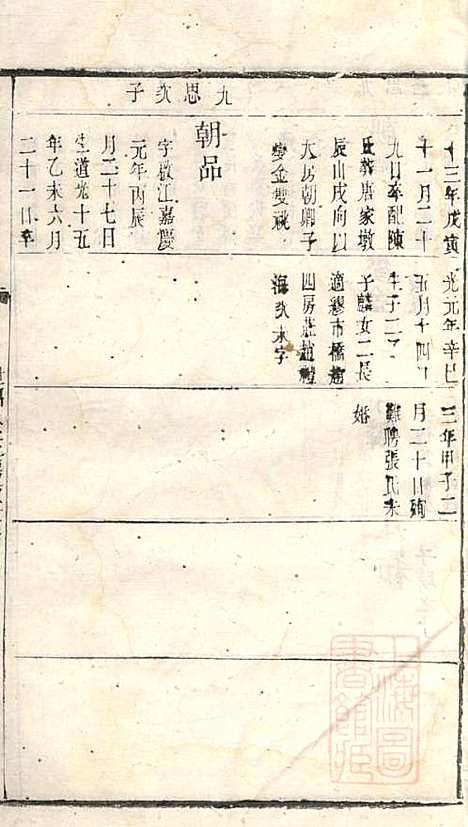 九思次子
十三年戊寅
十一月二十
九日卒配陳
氏葬唐家墩
辰山戌向以
大房朝卿子
燮金雙祧
朝品
字啟江嘉慶
元年丙辰
月二十七日
生道光十五
年乙未六月
二十一日卒
光元年辛巳
五月十四日
生子二
子麟女二長
適繆市橋
四房莊趙
海次未字
三年甲子二
月二十日殉
難聘張氏未
婚
上海圖
書館藏